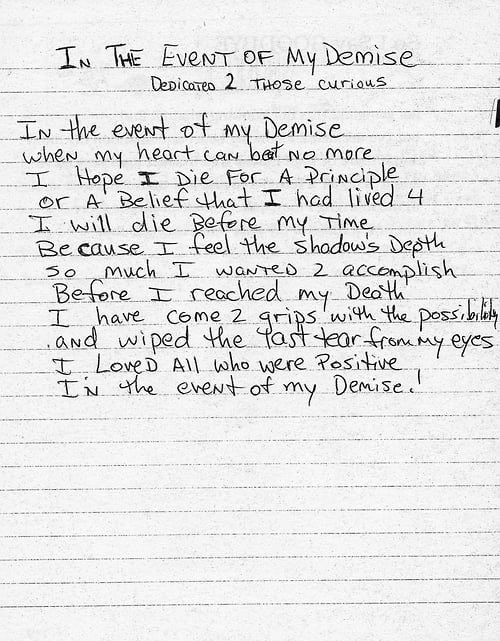 IN THE EVENT OF My Demise
DEDICATED 2 THOSE curious
IN the event of my Demise
when my heart can beat no more
I Hope I Die For A Principle
or A Belief that I had lived 4
I will die Before my Time
Because I feel the shadow's Depth
so much I wanted 2 accomplish
Before I reached my Death
I have come 2 grips with the possibility
and wiped the last tear from my eyes
I Loved All who were Positive
In the event of my Demise!